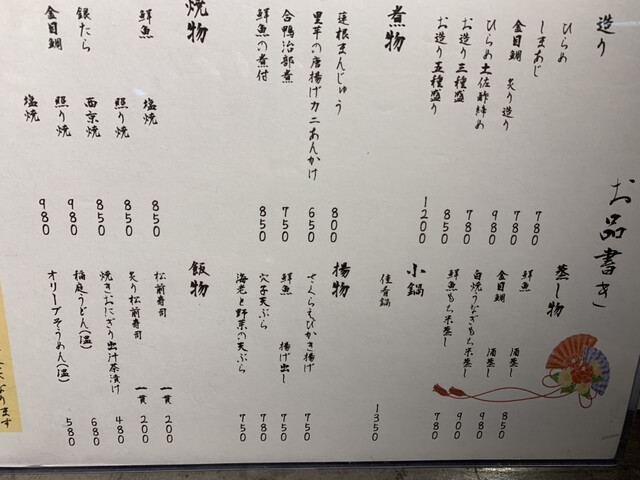 お品書き
造り
ひらめ 780
しまあじ 780
金目鯛 炙り造り 980
ひらめ土佐酢締め 780
お造り三種盛り 850
お造り五種盛り 1200
煮物
蓮根まんじゅう 800
里芋の唐揚げカニあんかけ 650
合鴨冶部煮 750
鮮魚の煮付 850
焼物
鮮魚 塩焼 850
照り焼 850
銀たら 西京焼 850
照り焼 980
金目鯛 塩焼 980
蒸し物
鮮魚 酒蒸し 850
金目鯛 酒蒸し 980
白焼うなぎもち米蒸し 900
鮮魚もち米蒸し 780
小鍋
佳肴鍋 1350
揚物
さくらえびかき揚げ 750
鮮魚 揚げ出し 750
穴子天ぷら 780
海老と野菜の天ぷら 750
飯物
松前寿司 一貫 200
炙り松前寿司 一貫 200
焼きおにぎり出汁茶漬け 480
稲庭うどん(温) 680
オリーブそうめん(温) 580
なります